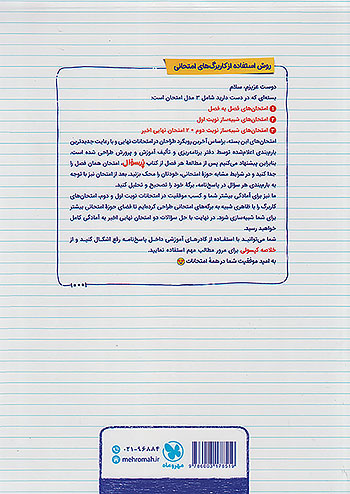 روش استفاده از کاربرگ‌های امتحانی
دوست عزیزم، سلام
بسته‌ای که در دست دارید شامل ۳ مدل امتحان است:
۱ امتحان‌های فصل به فصل
۲ امتحان‌های شبیه‌ساز نوبت اول
۳ امتحان‌های شبیه‌ساز نوبت دوم + ۲ امتحان نهایی اخیر
امتحان‌های این بسته، براساس آخرین رویکرد طراحان در امتحانات نهایی و با رعایت جدیدترین
بارم‌بندی اعلام‌شده توسط دفتر برنامه‌ریزی و تألیف آموزش و پرورش طراحی شده است.
بنابراین پیشنهاد می‌کنیم پس از مطالعهٔ هر فصل از کتاب پُرسؤال، امتحان همان فصل را
جدا کنید و در شرایط مشابه حوزهٔ امتحانی، خودتان را محک بزنید. بعد از امتحان نیز با توجه
به بارم‌بندی هر سؤال در پاسخ‌نامه، برگهٔ خود را تصحیح و تحلیل کنید.
ما نیز برای آمادگی بیشتر شما و کسب موفقیت در امتحانات نوبت اول و دوم، امتحان‌های
کاربرگ را با ظاهری شبیه به برگه‌های امتحانی طراحی کرده‌ایم تا فضای حوزهٔ امتحانی بیشتر
برای شما شبیه‌سازی شود. در نهایت با حل سؤالات دو امتحان نهایی اخیر به آمادگی کامل
خواهید رسید.
شما می‌توانید با استفاده از کادرهای آموزشی داخل پاسخ‌نامه رفع اشکال کنید و از
خلاصه کپسولی برای مرور مطالب مهم استفاده نمایید.
به امید موفقیت شما در همهٔ امتحانات
۰۲۱-۹۶۸۸۴
mehromah.ir
مهروماه
9786003176519